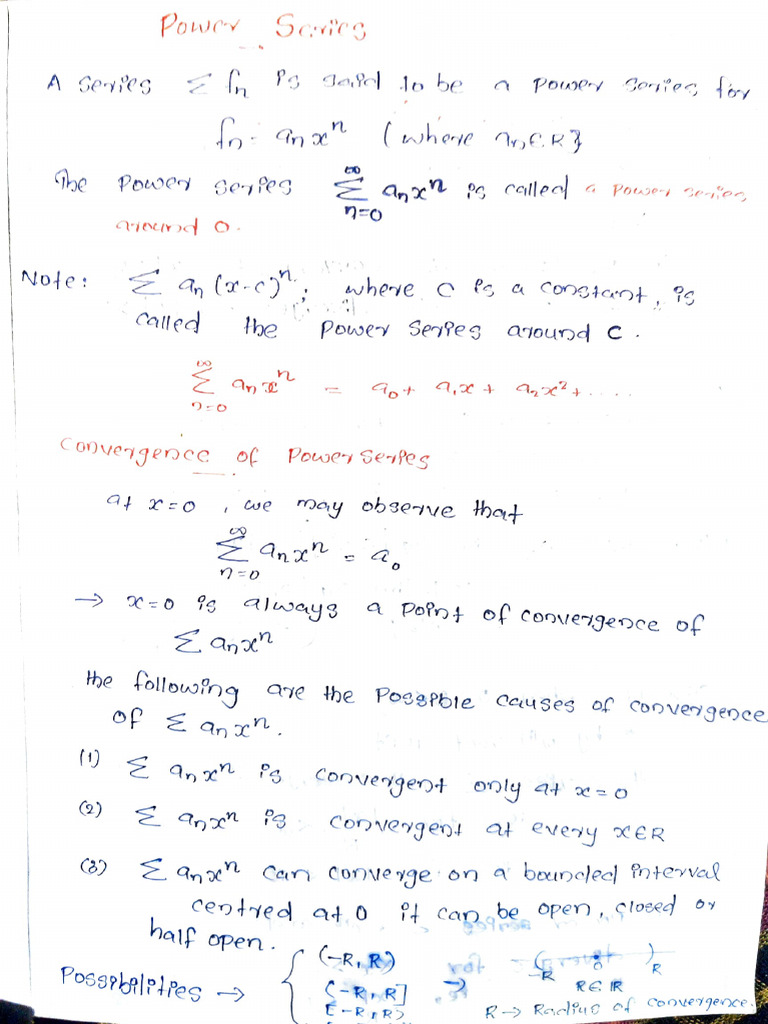 Power Series
A series Σ fn is said to be a power series for
fn = anxⁿ (where an∈R}
The power series ∞Σn=0 anxⁿ is called a power series
around 0.
Note: Σ an (x-c)ⁿ; where c is a constant, is
called the power series around c.
∞Σn=0 anxⁿ = a₀ + a₁x + a₂x² + .....
Convergence of Power series
at x=0, we may observe that
∞Σn=0 anxⁿ = a₀
→ x=0 is always a point of convergence of
Σ anxⁿ
the following are the possible causes of convergence
of Σ anxⁿ.
(1) Σ anxⁿ is convergent only at x=0
(2) Σ anxⁿ is convergent at every x∈R
(3) Σ anxⁿ can converge on a bounded interval
centred at 0 it can be open, closed or
half open.
Possibilities → { (-R, R)
(-R, R]
[-R, R)
→ -R 0 R
R∈ℝ
R → Radius of convergence.